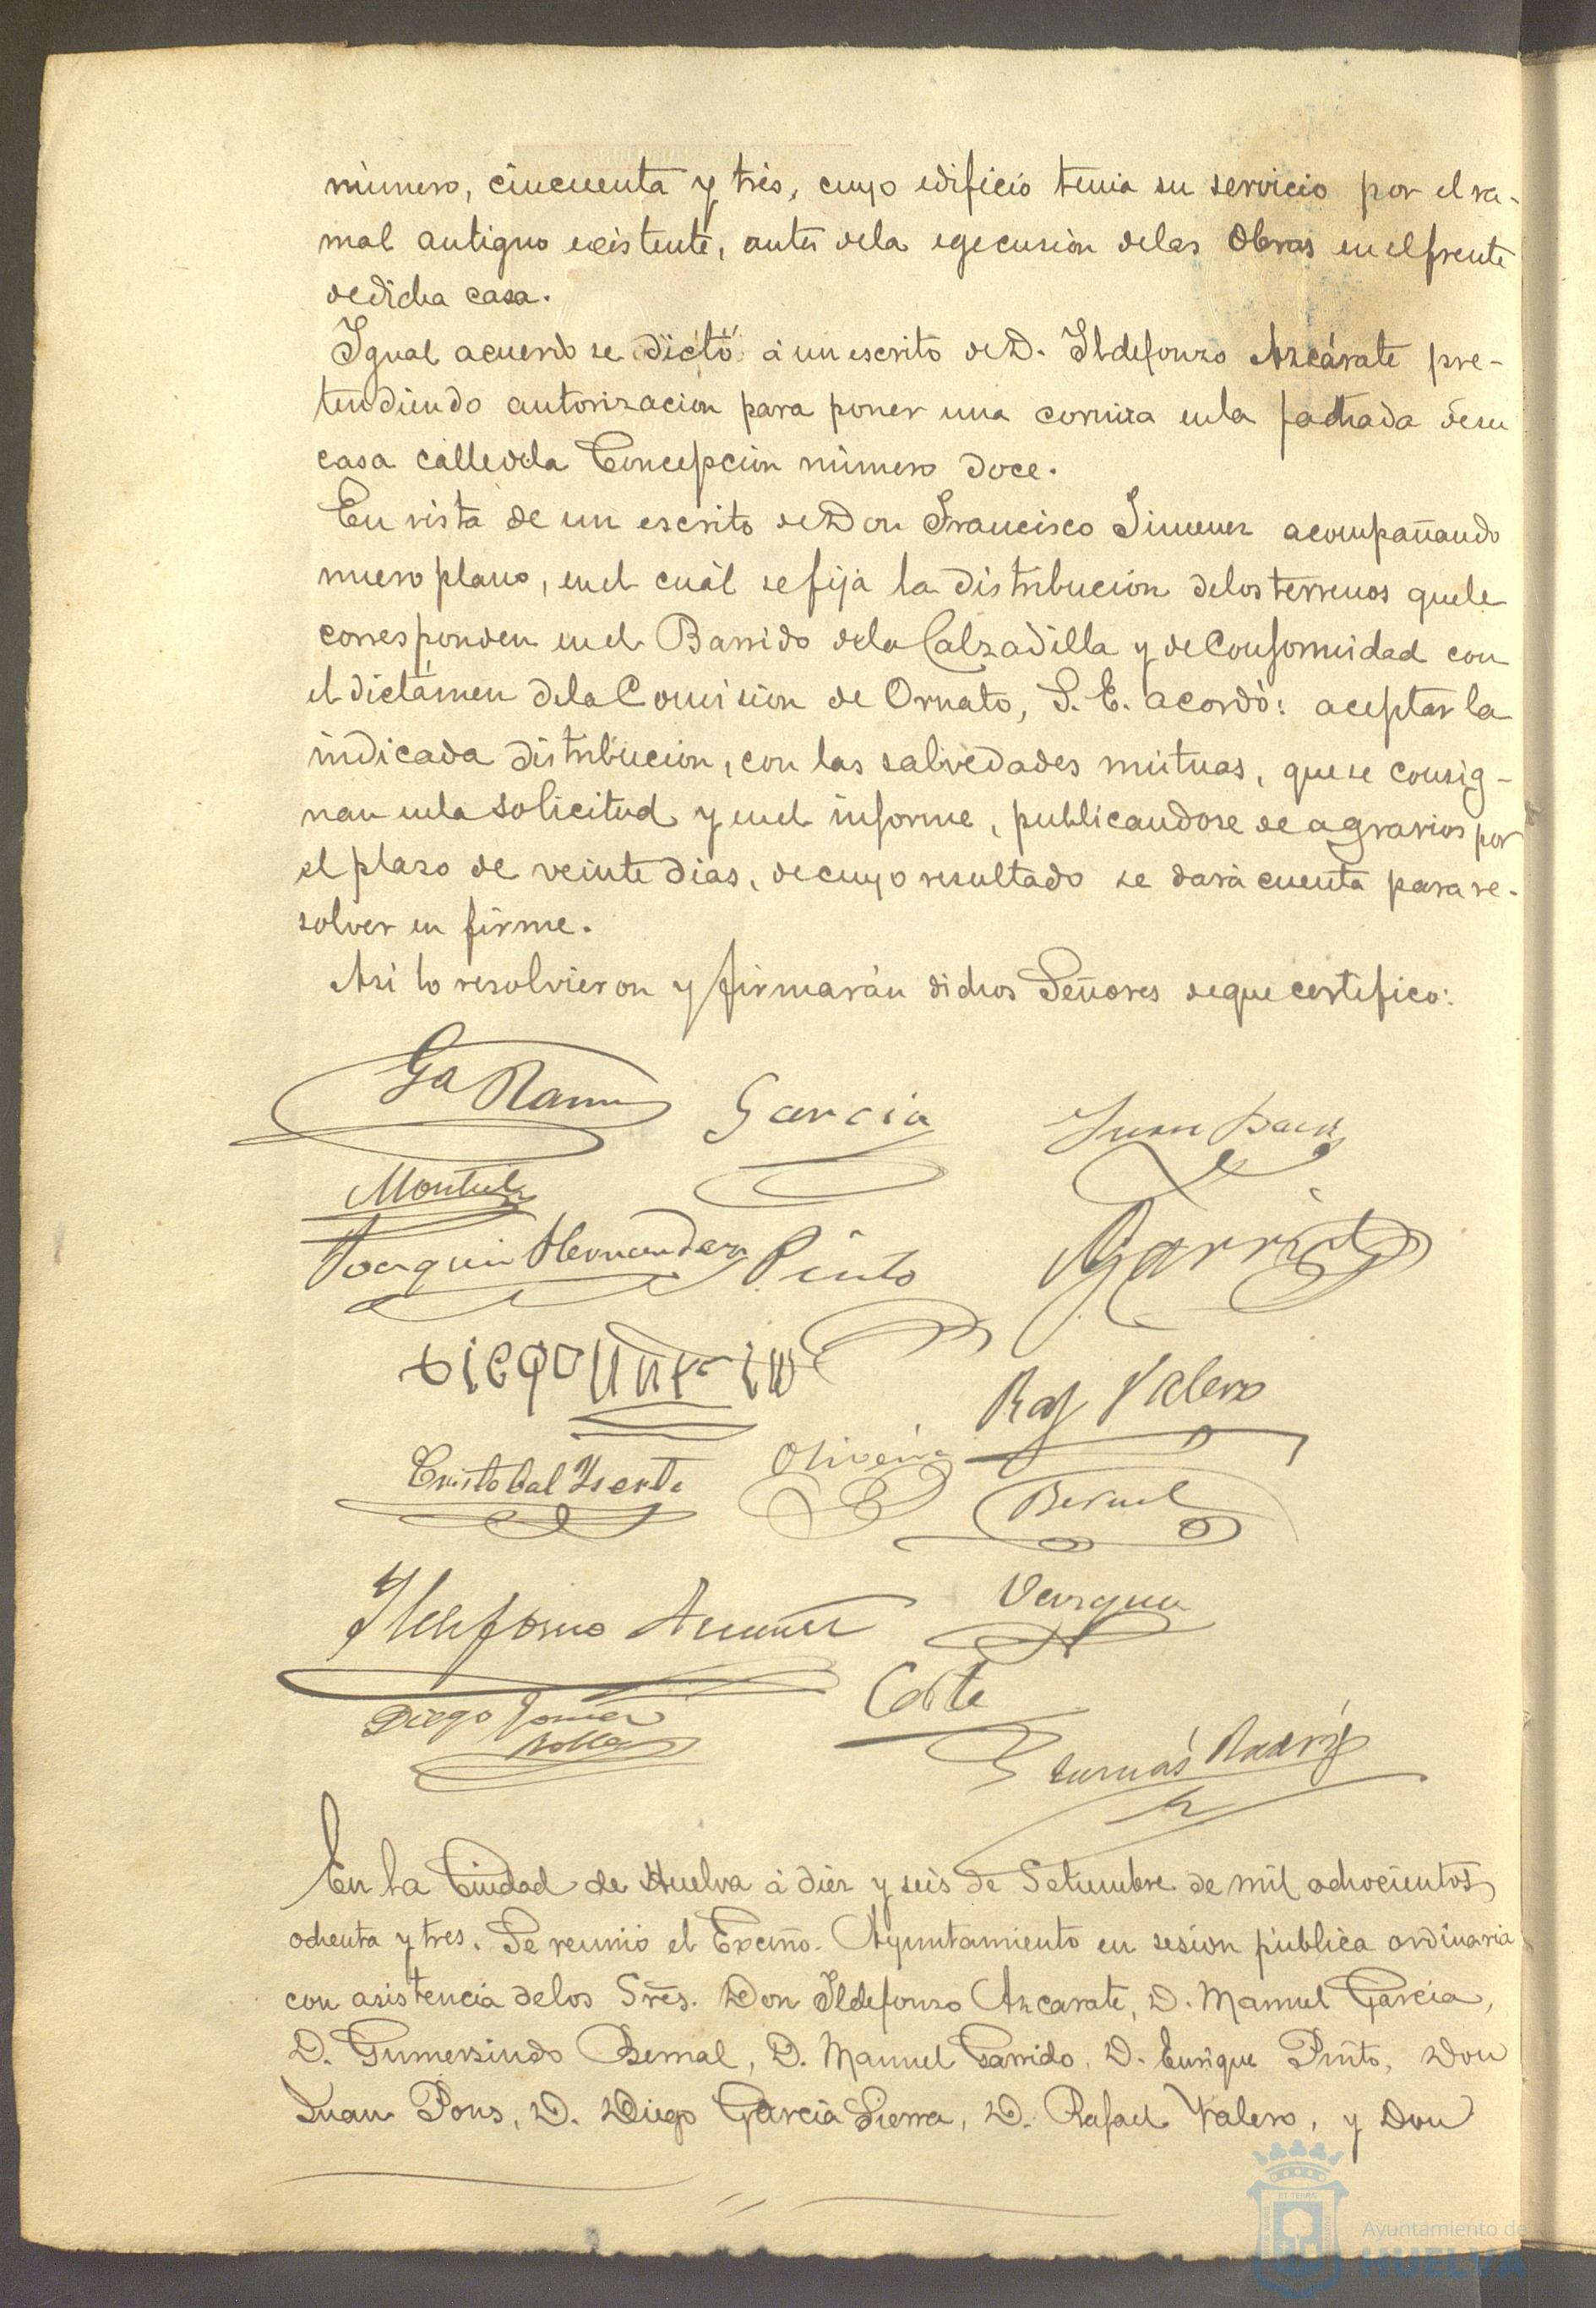 número, cincuenta y tres, cuyo edificio tenia su servicio por el ra-
mal antiguo existente, antes dela egecusion delas Obras en el frente
dedicha casa.
Igual acuerdo se dictó á un escrito de D. Ildefonso Azcárate pre-
tendiendo autorizacion para poner una corniza enla fachada desu
casa calle dela Concepcion número doce.
En vista de un escrito de Don Francisco Jimenez acompañando
nuevo plano, enel cuál se fija la distribucion delos terrenos quele
corresponden enel Barrido dela Calzadilla y de Conformidad con
el dictámen dela Comision de Ornato, S. E. acordó: aceptar la
indicada distribucion, con las salvedades mútuas, que se consig-
nan enla solicitud y enel informe, publicandose de agravios por
el plazo de veinte dias, de cuyo resultado se dará cuenta para re-
solver en firme.
Asi lo resolvieron y firmarán dichos Señores deque certifico:
Ga Ramos García
Joaquin Hernandez Pinto Garrido
Raf Valero
Cristobal Oliveira Bernal
Ildefonso Vargas
Diego Corte
Tomás Rodrig
En la Ciudad de Huelva á diez y seis de Setiembre de mil ochocientos
ochenta y tres. Se reunió el Excmo. Ayuntamiento en sesion pública ordinaria
con asistencia delos Sres. Don Ildefonso Azcarate, D. Manuel Garcia,
D. Gumersindo Bernal, D. Manuel Garrido, D. Enrique Pinto, Don
Juan Pons, D. Diego Garcia Sierra, D. Rafael Valero, y Don
Ayuntamiento de
HUELVA